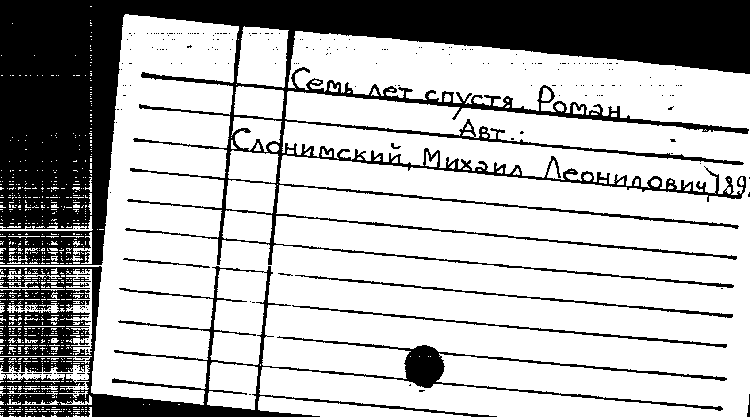 Семь лет спустя. Роман.
Авт.:
Слонимский, Михаил Леонидович,